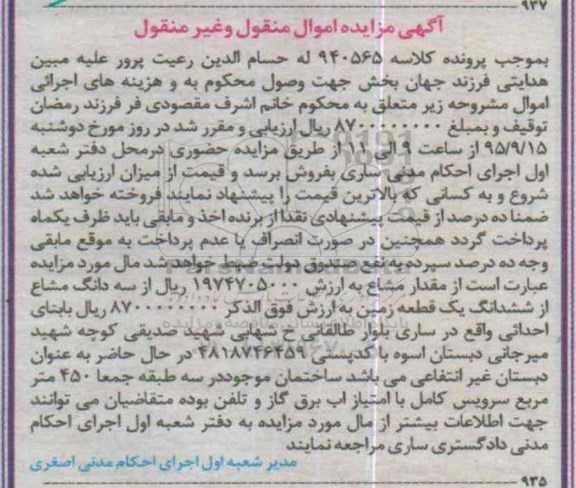 ۹۳۷
آگهی مزایده اموال منقول وغیر منقول
بموجب پرونده کلاسه ۹۴۰۵۶۵ له حسام الدین رعیت پرور علیه مبین
هدایتی فرزند جهان بخش جهت وصول محکوم به و هزینه های اجرائی
اموال مشروحه زیر متعلق به محکوم خانم اشرف مقصودی فر فرزند رمضان
توقیف و بمبلغ ۸۷۰۰۰۰۰۰۰۰۰ ریال ارزیابی و مقرر شد در روز مورخ دوشنبه
۹۵/۹/۱۵ از ساعت ۹ الی ۱۱ از طریق مزایده حضوری درمحل دفتر شعبه
اول اجرای احکام مدنی ساری بفروش برسد و قیمت از میزان ارزیابی شده
شروع و به کسانی که بالاترین قیمت را پیشنهاد نمایند فروخته خواهد شد
ضمنا ده درصد از قیمت پیشنهادی نقدا از برنده اخذ و مابقی باید ظرف یکماه
پرداخت گردد همچنین در صورت انصراف یا عدم پرداخت به موقع مابقی
وجه ده درصد سپرده به نفع صندوق دولت ضبط خواهد شد مال مورد مزایده
عبارت است از مقدار مشاع به ارزش ۱۹۷۴۷۰۵۰۰۰ ریال از سه دانگ مشاع
از ششدانگ یک قطعه زمین به ارزش فوق الذکر ۸۷۰۰۰۰۰۰۰۰۰ ریال بابنای
احداثی واقع در ساری بلوار طالقانی خ شهابی شهید صدیقی کوچه شهید
میرجانی دبستان اسوه با کدپستی ۴۸۱۸۷۴۶۴۵۹ در حال حاضر به عنوان
دبستان غیر انتفاعی می باشد ساختمان موجوددر سه طبقه جمعا ۴۵۰ متر
مربع سرویس کامل با امتیاز اب برق گاز و تلفن بوده متقاضیان می توانند
جهت اطلاعات بیشتر از مال مورد مزایده به دفتر شعبه اول اجرای احکام
مدنی دادگستری ساری مراجعه نمایند
مدیر شعبه اول اجرای احکام مدنی اصغری
۹۳۵